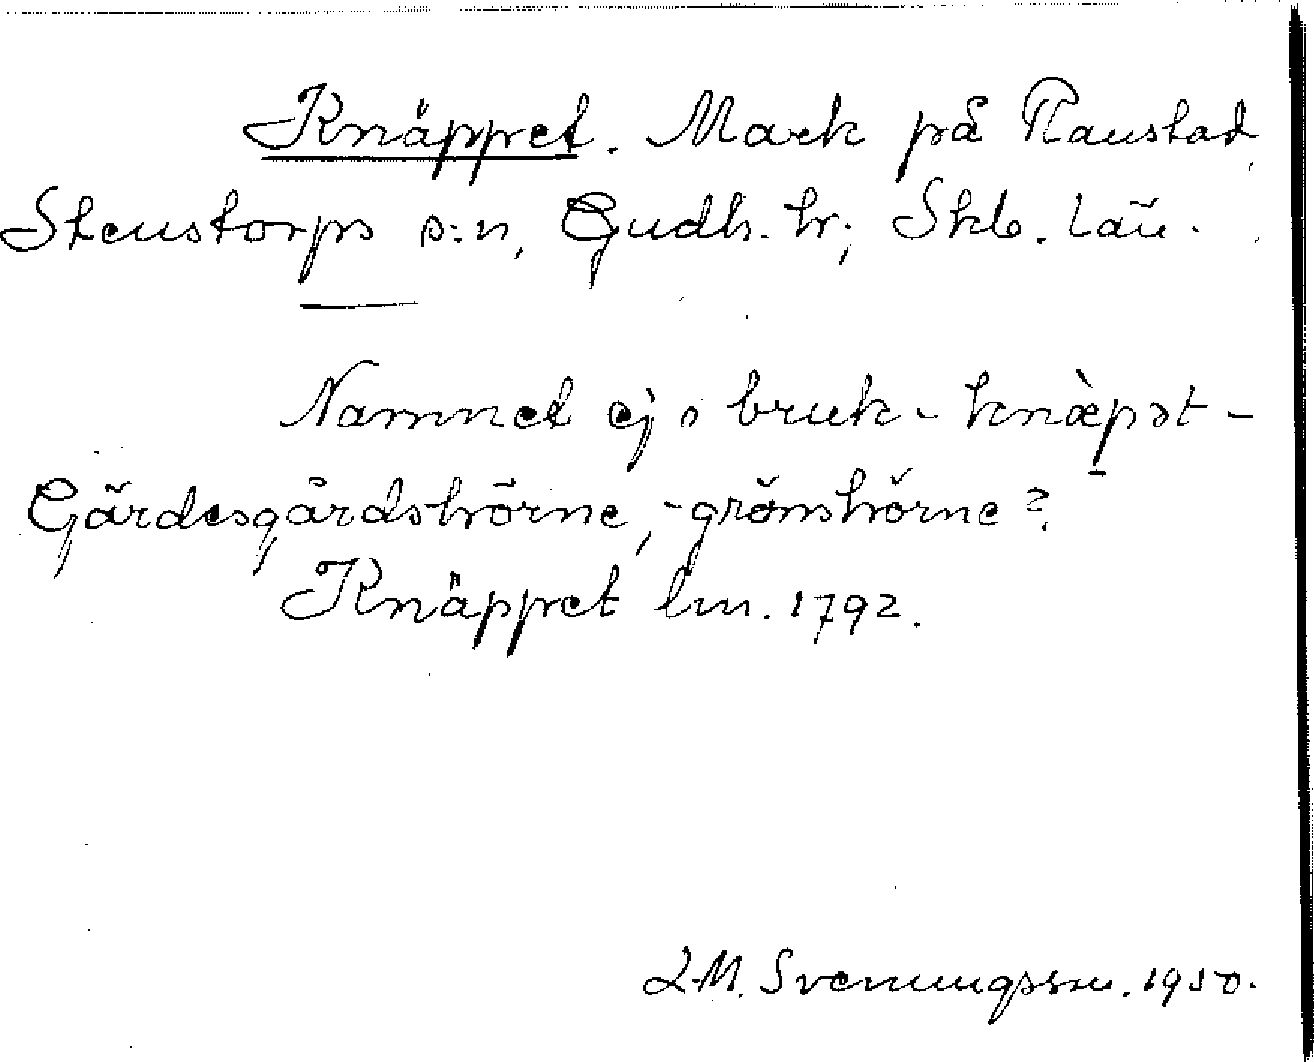 Knäppet. Mark på Raustad,
Stenstorps s:n, Gudh. hr; Skb. län.
Namnet ej i bruk - knæ̀pət -
Gärdesgårdshörne, -gränshörne?
Knäppet lm. 1792.
L.M. Svenungsson. 1950.